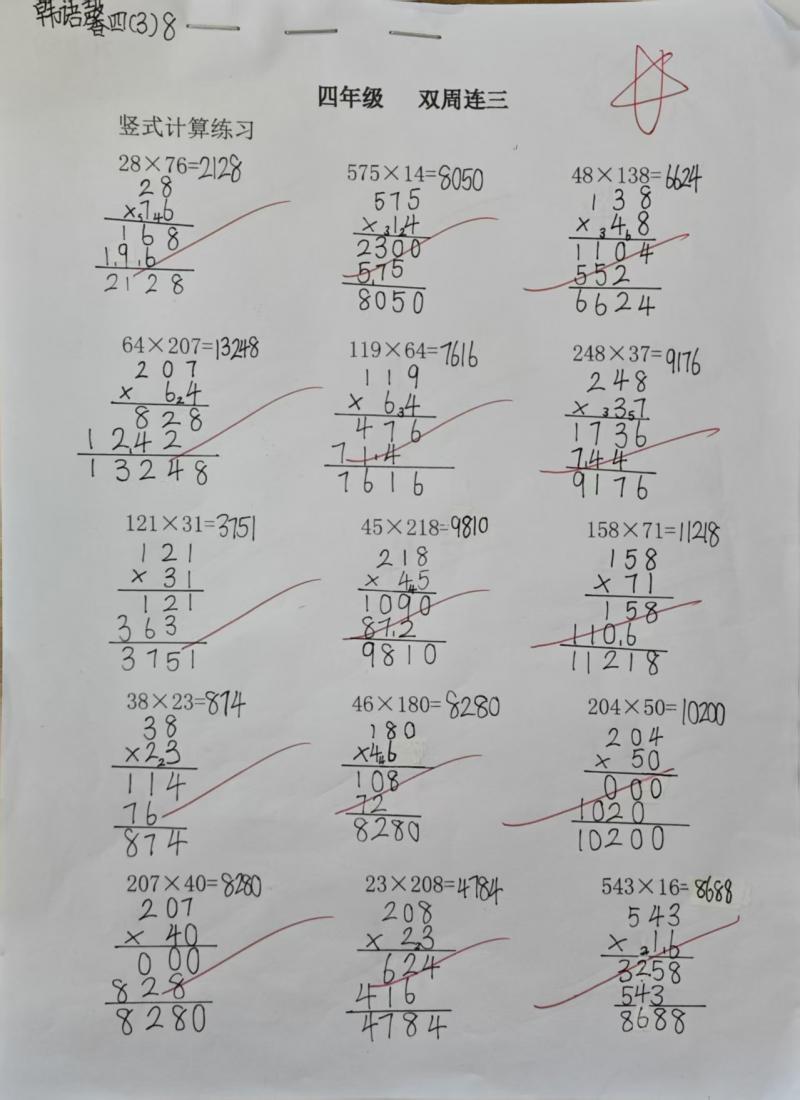 韩语馨四(3)8
四年级 双周连三
竖式计算练习
28×76=2128
28
×76
168
196
2128
575×14=8050
575
×14
2300
575
8050
48×138=6624
138
×48
1104
552
6624
64×207=13248
207
×64
828
1242
13248
119×64=7616
119
×64
476
714
7616
248×37=9176
248
×37
1736
744
9176
121×31=3751
121
×31
121
363
3751
45×218=9810
218
×45
1090
872
9810
158×71=11218
158
×71
158
1106
11218
38×23=874
38
×23
114
76
874
46×180=8280
180
×46
108
72
8280
204×50=10200
204
×50
000
1020
10200
207×40=8280
207
×40
000
828
8280
23×208=4784
208
×23
624
416
4784
543×16=8688
543
×16
3258
543
8688